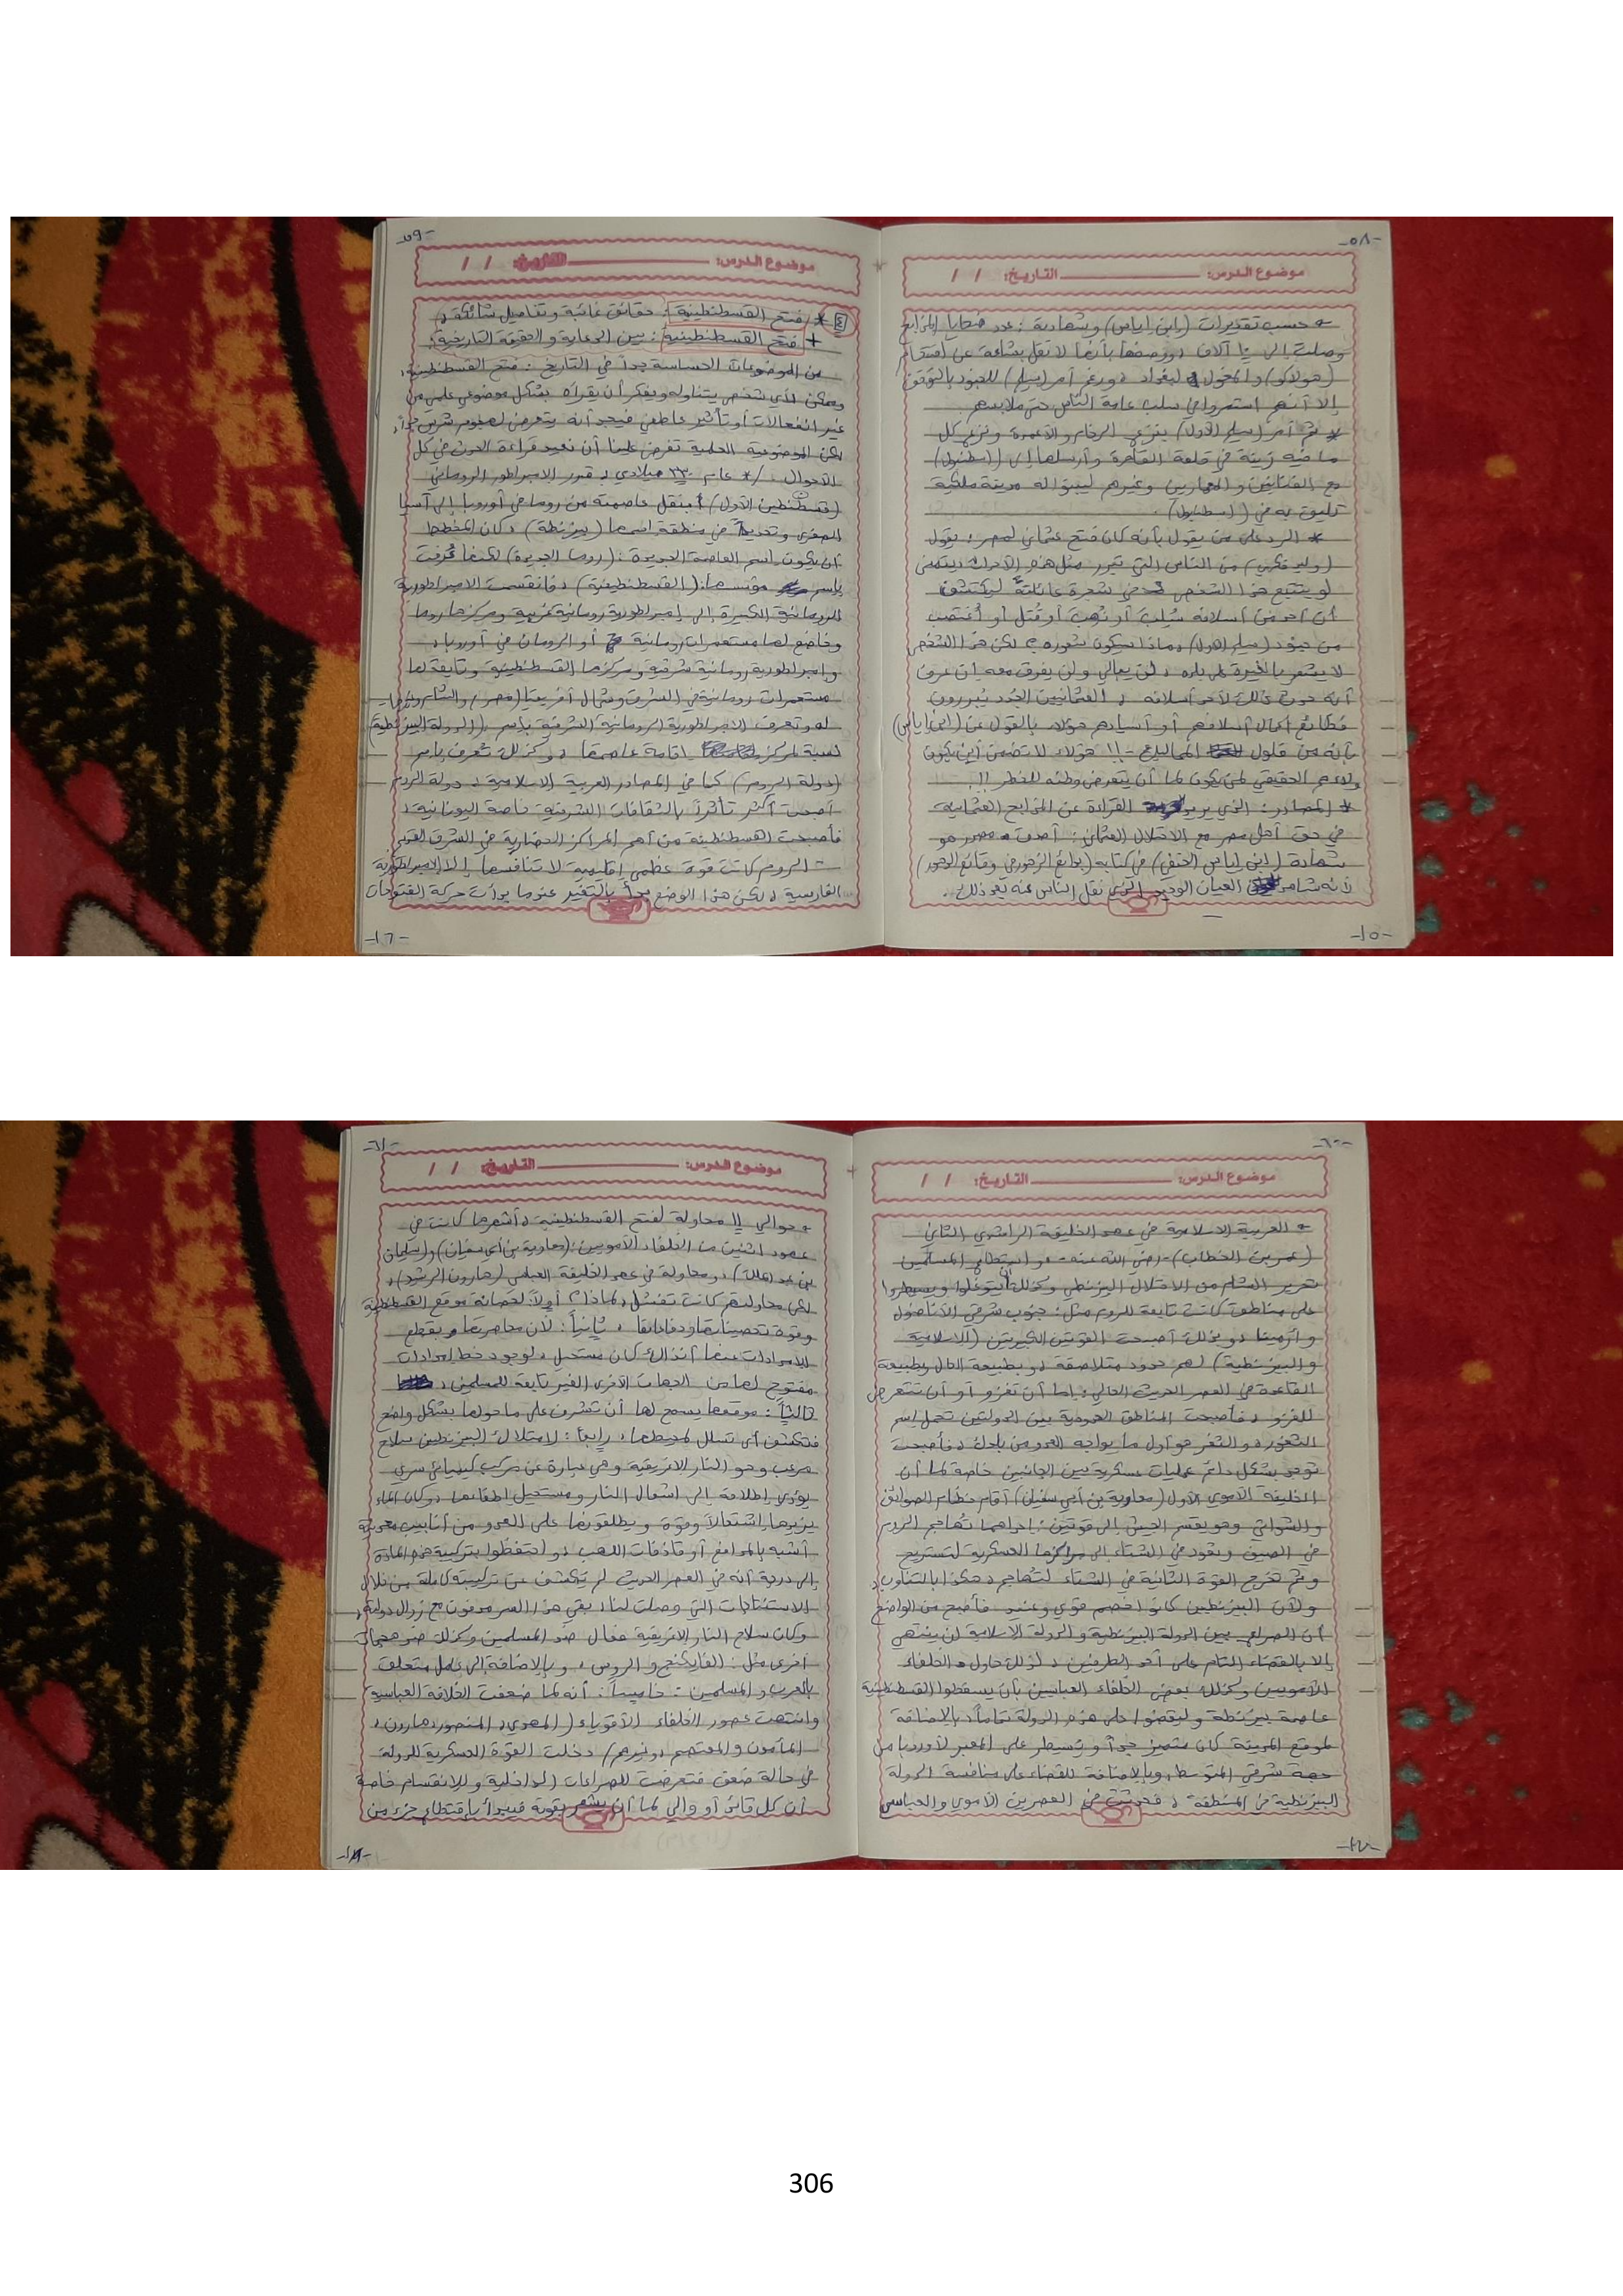 -٥٨-
موضوع الدرس: التاريخ: / /
+ حسب تقديرات (ابن إياس) وشهادته: عدد ضحايا المذابح
وصلت إلى ١٠ آلاف، ووصفها بأنها لا تقل بشاعة عن
(هولاكو) والمغول لبغداد، ورغم أمر (سليم) للجنود بالتوقف
إلا أنهم استمروا في سلب عامة الناس حتى ملابسهم
* ثم أمر (سليم الأول) بنزع الرخام والأعمدة ونزع كل
ما فيه زينة في قلعة القاهرة وأرسلها إلى (اسطنبول)
مع الفنانين والمعماريين وغيرهم ليبنوا له مدينة ملكية
تليق به في (اسطنبول).
* الرد على من يقول بأنه كان فتح عثماني لمصر: يقول
(وليد فكري) من الناس التي تبرر مثل هذه الأحداث: يتمنى
لو يتتبع هذا الشخص شجرة عائلته ليكتشف
أن أحد من أسلافه سُلب أو نُهب أو قُتل أو اُغتصب
من جنود (سليم الأول)، وماذا سيكون شعوره؟ لكن هذا الشخص
لا يشعر بالغيرة على بلده، لن يبالي ولن يفرق معه إن عرف
أنه حدث ذلك لأحد أسلافه، العثمانيين الجدد يبررون
فظائع أعمال أسلافهم أو أسيادهم هؤلاء بالقول عن (ابن إياس)
بأنه من فلول المماليك -!! هؤلاء لا تضمن أين يكون
ولاءهم الحقيقي لمن يكون لما أن يتعرض وطنه للخطر!!
* المصادر: الذي يريد القراءة عن المذابح العثمانية
في حق أهل مصر مع الاحتلال العثماني: أصدق مصدر هو
شهادة (ابن إياس الحنفي) في كتابه (بدائع الزهور في وقائع الدهور)
لأنه شاهد العيان الوحيد الذي نقل الناس عنه بعد ذلك..
-١٥-
-٥٩-
موضوع الدرس: التاريخ: / /
٤ * فتح القسطنطينية: حقائق غائبة وتفاصيل شائكة،
+ فتح القسطنطينية: بين الدعاية والحقيقة التاريخية:
من الموضوعات الحساسة جداً في التاريخ: فتح القسطنطينية،
ويمكن لأي شخص يتناوله ويفكر أن يقرأه بشكل موضوعي علمي من
غير انفعالات أو تأثير عاطفي فيجد أنه يتعرض لهجوم شرس جداً،
لكن الموضوعية العلمية تفرض علينا أن نعيد قراءة الحدث في كل
الأحوال / * عام ٣٣٠ ميلادي، قرر الامبراطور الروماني
(قسطنطين الأول) بنقل عاصمته من روما في أوروبا إلى آسيا
الصغرى وتحديداً في منطقة اسمها (بيزنطة)، كان المخطط
أن يكون اسم العاصمة الجديدة: (روما الجديدة) لكنها عُرفت
باسم مؤسسها: (القسطنطينية)، فانقسمت الامبراطورية
الرومانية الكبيرة إلى إمبراطورية رومانية غربية ومركزها روما
وخاضع لها مستعمرات رومانية أو الرومان في أوروبا،
وامبراطورية رومانية شرقية ومركزها القسطنطينية وتابعة لها
مستعمرات رومانية في الشرق وشمال أفريقيا (مصر) والشام
وتعرف الامبراطورية الرومانية الشرقية باسم (الدولة البيزنطية)
نسبة لمركز إقامة عاصمتها، وكذلك تعرف باسم
(دولة الروم) كما في المصادر العربية الاسلامية، دولة الروم
أصبحت أكثر تأثراً بالثقافات الشرقية خاصة اليونانية،
فأصبحت القسطنطينية من أهم المراكز الحضارية في الشرق القديم
- الروم كانت قوة عظمى إقليمية لا تنافسها إلا الامبراطورية
الفارسية، لكن هذا الوضع بدأ بالتغير عندما بدأت حركة الفتوحات
-١٦-
-٦٠-
موضوع الدرس: التاريخ: / /
+ العربية الاسلامية في عهد الخليفة الراشدي الثاني
(عمر بن الخطاب) -رضي الله عنه- واستطاع المسلمين
تحرير الشام من الاحتلال البيزنطي وكذلك أن يتوغلوا ويسيطروا
على مناطق كانت تابعة للروم مثل: جنوب شرق الأناضول
و أرمينيا، وبذلك أصبحت القوتين الكبيرتين (الاسلامية
والبيزنطية) لهم حدود متلاصقة، وبطبيعة الحال وبطبيعة
القاعدة في العصر الحديث الحالي: إما أن تغزو أو أن تتعرض
للغزو، فأصبحت المناطق الحدودية بين الدولتين تحمل اسم
الثغور، والثغر هو أول ما يواجه العدو من بلدك، فأصبحت
توجد بشكل دائم عمليات عسكرية بين الجانبين خاصة لما أن
الخليفة الأموي الأول (معاوية بن أبي سفيان) أقام نظام الصوائف
والشواتي وهو يقسم الجيش إلى قوتين: إحداهما تهاجم الروم
في الصيف وتعود في الشتاء إلى مراكزها العسكرية لتستريح
وثم تخرج القوة الثانية في الشتاء لتهاجم، هكذا بالتناوب،
ولأن البيزنطيين كانوا خصم قوي وعنيد فأصبح من الواضح
أن الصراع بين الدولة البيزنطية والدولة الاسلامية لن ينتهي
إلا بالقضاء التام على أحد الطرفين، لذلك حاول الخلفاء
الأمويين وكذلك بعض الخلفاء العباسيين بأن يسقطوا القسطنطينية
عاصمة بيزنطة وليقضوا على هذه الدولة تماماً، بالإضافة
لموقع المدينة كان متميز جداً وتسيطر على المعبر لأوروبا من
جهة شرق المتوسط، وبالإضافة للقضاء على منافسة الدولة
البيزنطية في المنطقة، فحدثت في العصرين الأموي والعباسي
-١٧-
-٦١-
موضوع الدرس: التاريخ: / /
+ حوالي ١١ محاولة لفتح القسطنطينية، أشهرها كانت في
عهود اثنين من الخلفاء الأمويين: (معاوية بن أبي سفيان) و(سليمان
بن عبد الملك)، ومحاولة في عهد الخليفة العباسي (هارون الرشيد)،
لكن محاولتهم كانت تفشل، لماذا؟ أولاً: لحصانة موقع القسطنطينية
وقوة تحصيناتها ودفاعاتها، ثانياً: لأن محاصرتها وبقطع
الامدادات عنها آنذاك كان مستحيل، لوجود خط إمدادات
مفتوح لها من الجهات الأخرى الغير تابعة للمسلمين،
ثالثاً: موقعها يسمح لها أن تشرف على ما حولها بشكل واضح
فتكشف أي تسلل لمحيطها، رابعاً: لامتلاك البيزنطيين سلاح
مرعب وهو النار الاغريقية وهي عبارة عن مركب كيميائي سري
يؤدي إطلاقه إلى اشعال النار ومستحيل اطفائها، وكان الماء
يزيدها اشتعالاً وقوة ويطلقونها على العدو من أنابيب معدنية
أشبه بالمدافع أو قاذفات اللهب، واحتفظوا بتركيبة هذه المادة
إلى درجة أنه في العصر الحديث لم يُكتشف عن تركيبه كاملة من خلال
الاستنتاجات التي وصلت لنا، بقي هذا السر مدفون مع زوال دولته،
وكان سلاح النار الاغريقية فعّال ضد المسلمين وكذلك ضد هجمات
أخرى مثل: الفايكنج والروس، وبالإضافة إلى عامل متعلق
بالعرب والمسلمين: خامساً: أنه لما ضعفت الخلافة العباسية
وانتهت عصور الخلفاء الأقوياء (المهدي، المنصور، هارون،
المأمون والمعتصم، وغيرهم) دخلت القوة العسكرية للدولة
في حالة ضعف فتعرضت للصراعات الداخلية وللانقسام خاصة
أن كل قائد أو والي لما أن يشعر بقوته فيبدأ بإقتطاع جزء من
-١٨-
306